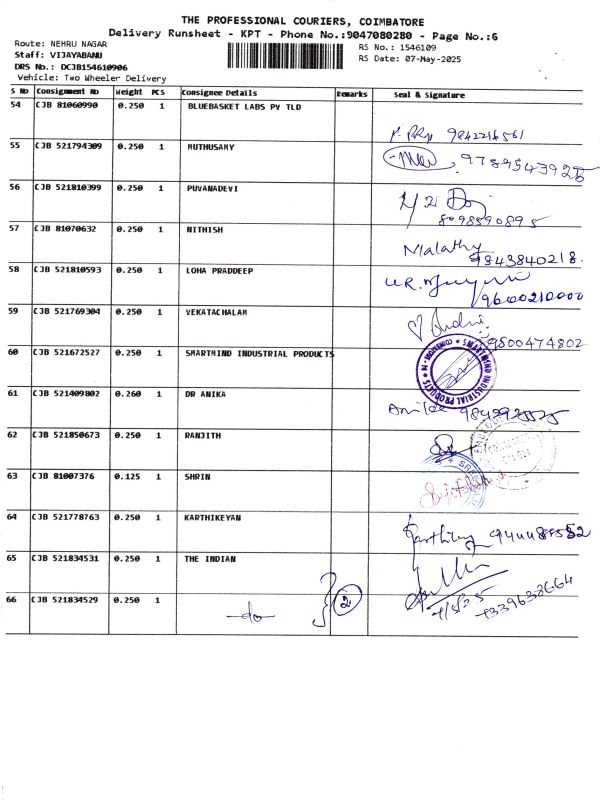 THE PROFESSIONAL COURIERS, COIMBATORE
Delivery Runsheet - KPT - Phone No.:9047080280 - Page No.:6
Route: NEHRU NAGAR
Staff: VIJAYABANU
DRS No.: DCJB154610906
Vehicle: Two Wheeler Delivery
RS No.: 1546109
RS Date: 07-May-2025
S No Consignment No Weight PCS Consignee Details Remarks Seal & Signature
54 CJB 81060990 0.250 1 BLUEBASKET LABS PV TLD
9842216561
55 CJB 521794309 0.250 1 MUTHUSAMY
56 CJB 521810399 0.250 1 PUVANADEVI
8098590895
57 CJB 81070632 0.250 1 NITHISH
Malathy
9843840218.
58 CJB 521810593 0.250 1 LOHA PRADDEEP
9600210000
59 CJB 521769304 0.250 1 VEKATACHALAM
9500474802
60 CJB 521672527 0.250 1 SMARTMIND INDUSTRIAL PRODUCTS
SMARTMIND INDUSTRIAL PRODUCTS
61 CJB 521409802 0.260 1 DR ANIKA
62 CJB 521850673 0.250 1 RANJITH
63 CJB 81007376 0.125 1 SHRIN
64 CJB 521778763 0.250 1 KARTHIKEYAN
65 CJB 521834531 0.250 1 THE INDIAN
66 CJB 521834529 0.250 1 -do- 2